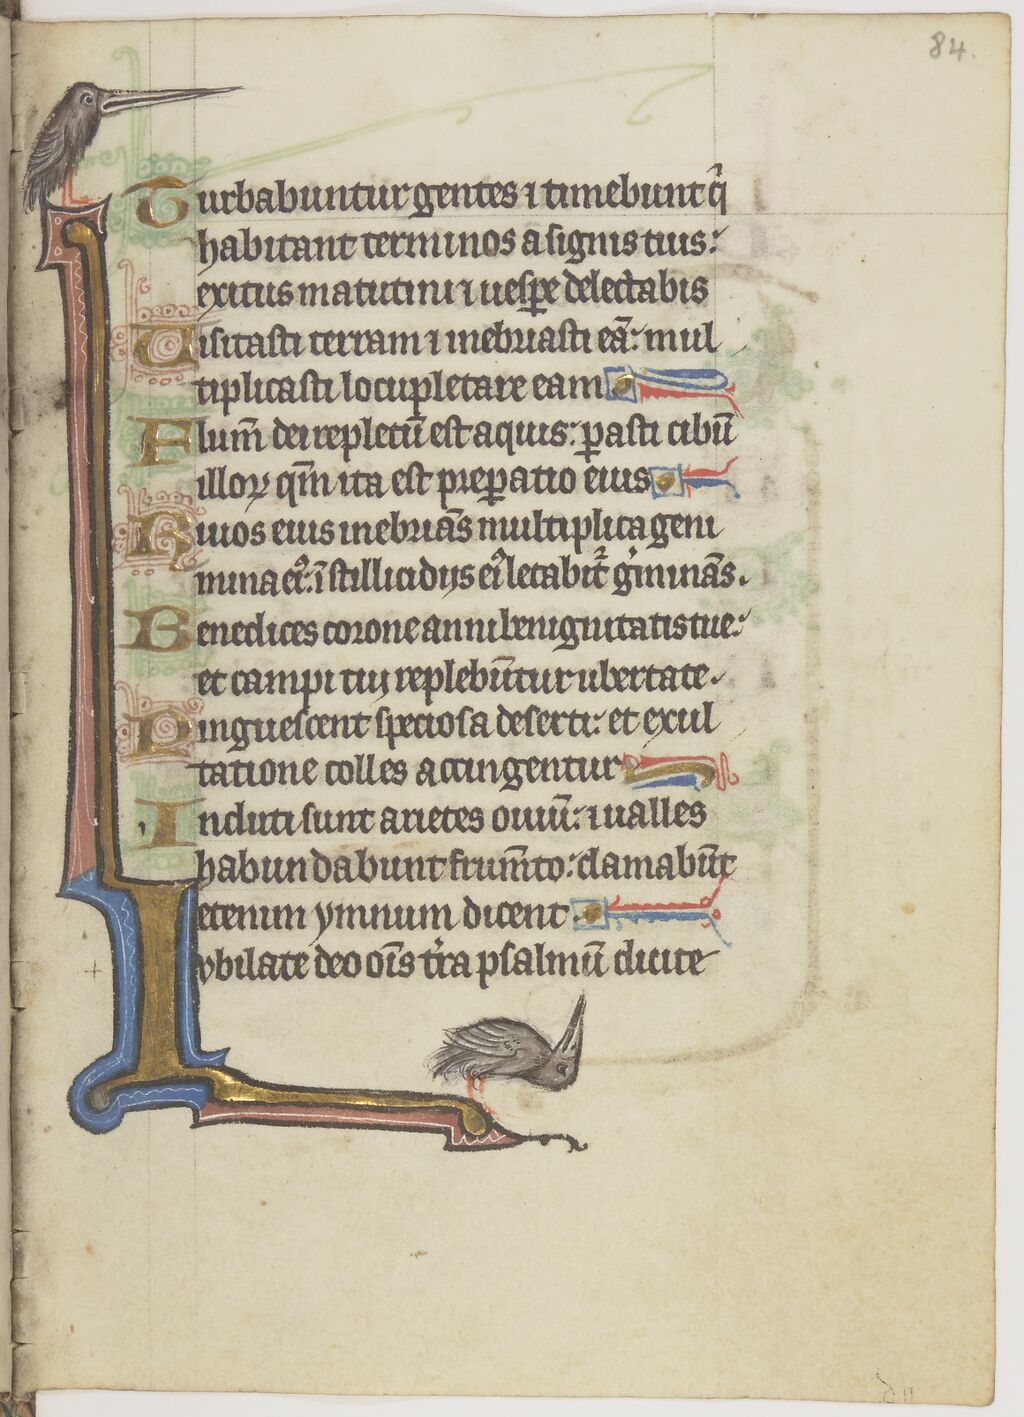 84.
Turbabuntur gentes ⁊ timebunt q̄
habitant terminos a signis tuis:
exitus matutini ⁊ uesꝑe delectabis
Uisitasti terram ⁊ inebriasti eā: mul
tiplicasti locupletare eam
Flum̄ dei repletū est aquis: ꝑasti cibū
illoꝝ qm̄ ita est preꝑatio eius
Riuos eius inebriās multiplica geni
mina eiꝰ: ī stillicidijs eiꝰ letabit᷑ gͥminās.
Benedices corone anni benignitatis tue:
et campi tui replebūtur ubertate.
Pinguescent speciosa deserti: et exul
tatione colles accingentur
Induti sunt arietes ouiū: ⁊ ualles
habundabunt frum̄to: clamabūt
etenim ymnum dicent.
Iubilate deo om̄s tͥra psalmū dicite